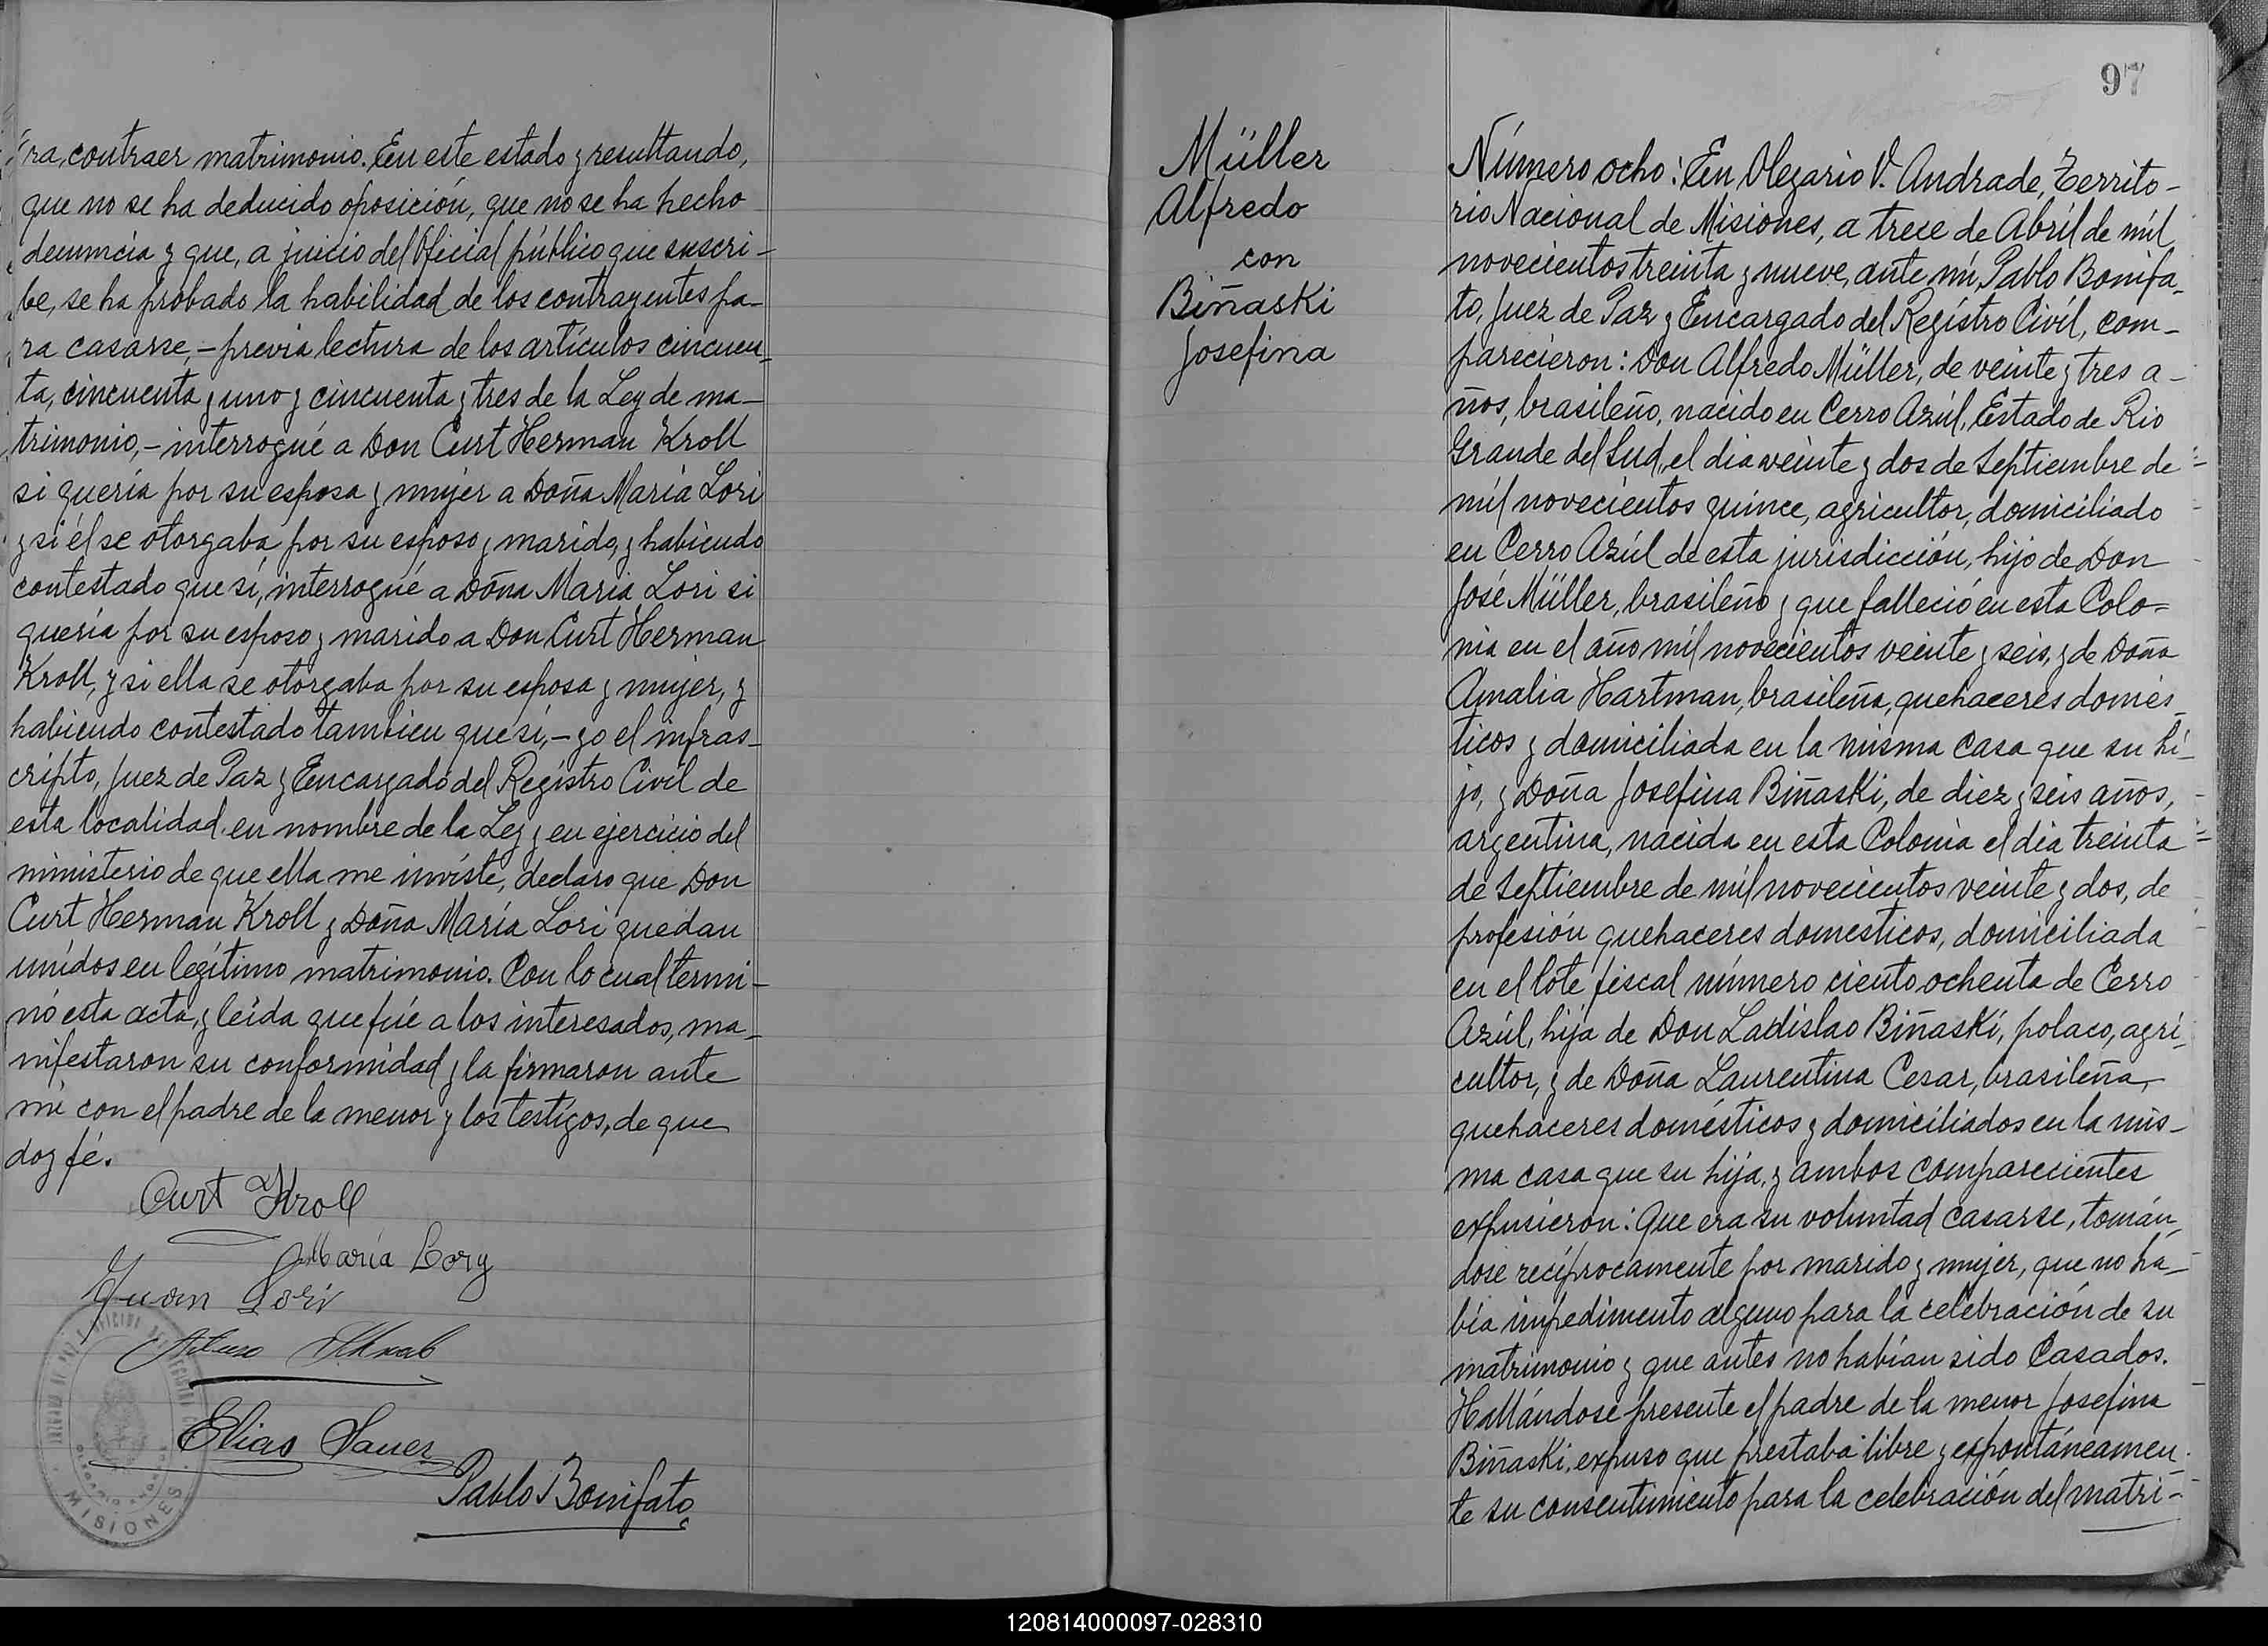 ra, contraer matrimonio. En este estado y resultando,
que no se ha deducido oposición, que no se ha hecho
denuncia y que, a juicio del Oficial público que suscri-
be, se ha probado la habilidad de los contrayentes pa-
ra casarse, - previa lectura de los artículos cincuen-
ta, cincuenta y uno y cincuenta y tres de la Ley de ma-
trimonio, - interrogué a Don Curt Herman Kroll
si quería por su esposa y mujer a Doña María Lori
y si él se otorgaba por su esposo y marido, y habiendo
contestado que sí, interrogué a Doña María Lori si
quería por su esposo y marido a Don Curt Herman
Kroll, y si ella se otorgaba por su esposa y mujer, y
habiendo contestado tambien que sí, - yo el infras-
cripto, Juez de Paz y Encargado del Registro Civil de
esta localidad, en nombre de la Ley y en ejercicio del
ministerio de que ella me inviste, declaro que Don
Curt Herman Kroll y Doña María Lori quedan
unidos en legítimo matrimonio. Con lo cual termi-
nó esta acta, y leida que fué a los interesados, ma-
nifestaron su conformidad y la firmaron ante
mí con el padre de la menor y los testigos, de que
doy fé.
Curt Kroll
María Lory
Juan Lori
Arturo
Elias Sauer
Pablo Bonifato
MISIONES
97
Müller
Alfredo
con
Biñaski
Josefina
Número ocho: En Olegario V. Andrade, Territo-
rio Nacional de Misiones, a trece de Abríl de mil
novecientos treinta y nueve, ante mí, Pablo Bonifa-
to, Juez de Paz y Encargado del Registro Civíl, com-
parecieron: Don Alfredo Müller, de veinte y tres a-
ños, brasileño, nacido en Cerro Azúl, Estado de Rio
Grande del Sud, el dia veinte y dos de Septiembre de
mil novecientos quince, agricultor, domiciliado
en Cerro Azúl de esta jurisdicción, hijo de Don
José Müller, brasileño y que falleció en esta Colo=
nia en el año mil novecientos veinte y seis, y de Doña
Amalia Hartman, brasileña, quehaceres domés-
ticos y domiciliada en la misma casa que su hi-
jo, y Doña Josefina Biñaski, de diez y seis años,
argentina, nacida en esta Colonia el dia treinta
de Septiembre de mil novecientos veinte y dos, de
profesión quehaceres domésticos, domiciliada
en el lote fiscal número ciento ochenta de Cerro
Azúl, hija de Don Ladislao Biñaski, polaco, agri-
cultor, y de Doña Laurentina Cesar, brasileña,
quehaceres domésticos y domiciliados en la mis-
ma casa que su hija, y ambos comparecientes
expusieron: Que era su voluntad casarse, tomán-
dose recíprocamente por marido y mujer, que no ha-
bía impedimento alguno para la celebración de su
matrimonio y que antes no habían sido Casados.
Hallándose presente el padre de la menor Josefina
Biñaski, expuso que prestaba libre y expontáneamen-
te su consentimiento para la celebración del matri-
120814000097-028310